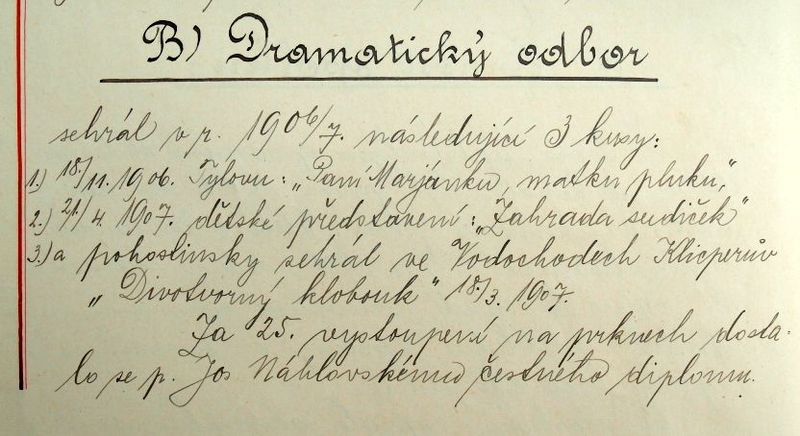 B) Dramatický odbor
sehrál v r. 1906/7. následující 3 kusy:
1.) 18./11. 1906. Týlovu: „Paní Marjánku, matku pluku,"
2.) 21./4. 1907. dětské představení: „Zahrada sudiček"
3.) a pohostinsky sehrál ve Vodochodech Klicperův
„Divotvorný klobouk" 18./3. 1907.
Za 25. vystoupení na prknech dosta-
lo se p. Jos Náhlovskému čestného diplomu.